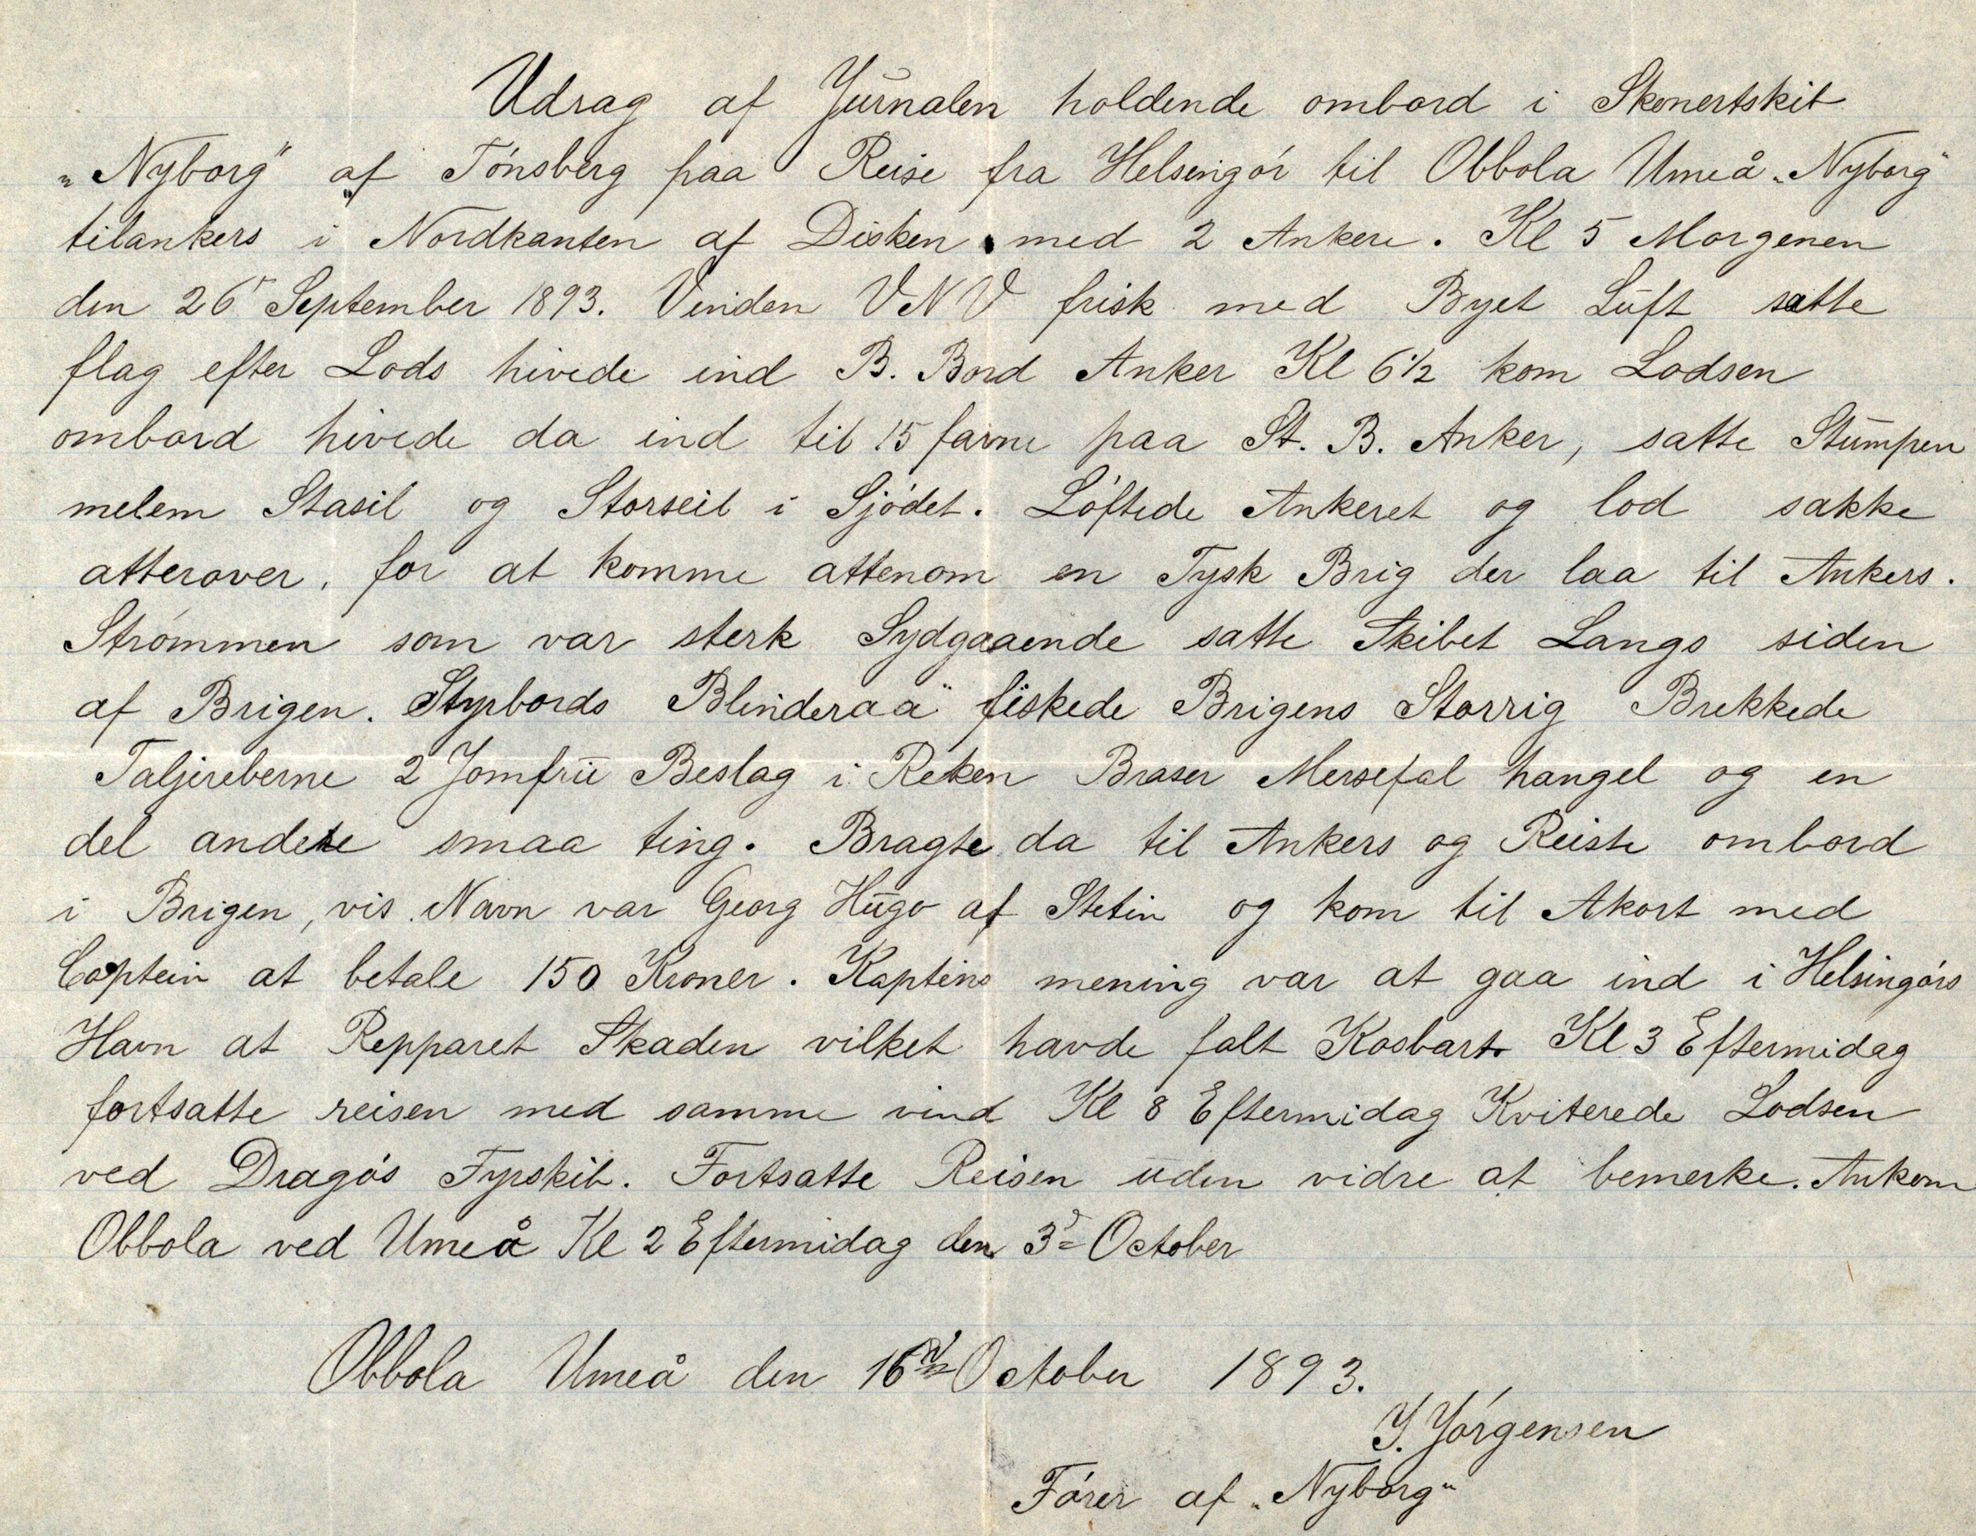 Udrag af Jurnalen holdende ombord i Skonertskib
„Nyborg" af Tónsberg paa Reise fra Helsingór til Obbola Umeå „Nyborg"
tilankers i Nordkanten af Disken med 2 Ankere. Kl 5 Morgenen
den 26 September 1893. Vinden VNV frisk med Byet Luft satte
flag efter Lods hivede ind B. Bord Anker Kl 6 1/2 kom Lodsen
ombord hivede da ind til 15 favne paa St. B. Anker, satte Stumpen
melem Stasil og Storseil i Sjódet. Lóftede Ankeret og lod sakke
atterover, for at komme attenom en Tysk Brig der laa til Ankers.
Strómmen som var sterk Sydgaaende satte Skibet Langs siden
af Brigen. Styrbords Blinderaa fiskede Brigens Storrig Brekkede
Taljereberne 2 Jomfru Beslag i Reken Braser Mersefal hangel og en
del andete smaa ting. Bragte da til Ankers og Reiste ombord
i Brigen, vis Navn var Georg Hugo af Stetin og kom til Akort med
Captein at betale 150 Kroner. Kaptins mening var at gaa ind i Helsingórs
Havn at Repparet Skaden vilket havde falt Kosbart Kl 3 Eftermidag
fortsatte reisen med samme vind Kl 8 Eftermidag Kviterede Lodsen
ved Dragós Fyrskib. Fortsatte Reisen uden vidre at bemerke. Ankom
Obbola ved Umeå Kl 2 Eftermidag den 3 October
Obbola Umeå den 16 October 1893.
J. Jórgensen
Fórer af „Nyborg"